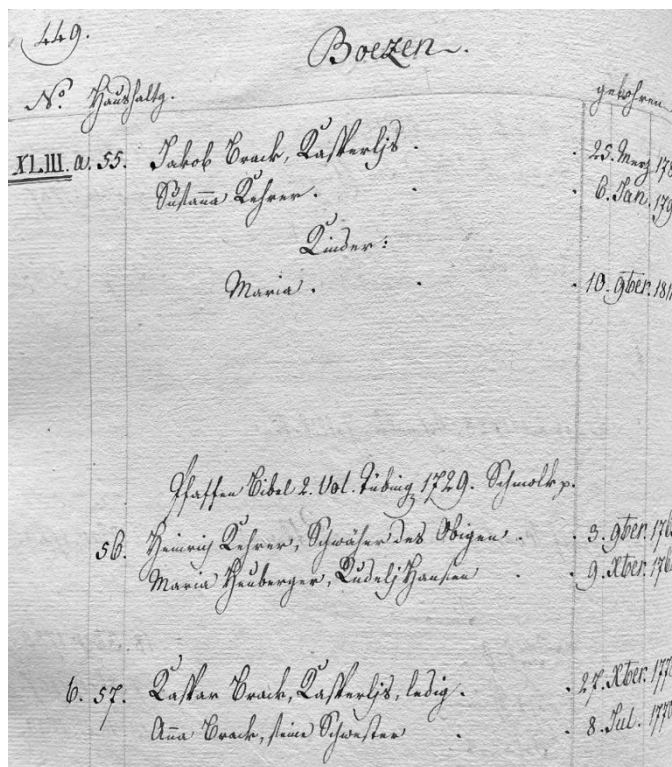 449.
Boezen.
No. Haushaltg. gebohren
XLIII. a. 55. Jakob Brack, Kasperljs . . 25. Merz 178
Susanna Kehrer . . . 6. Jan. 179
Kinder:
Maria . . . 10. 9ber. 181
Pfaffen Bibel 2. Vol. Tübing 1729. Schmolk p.
56. Heinrich Kehrer, Schwäher des Obigen . . 3. 9ber. 176
Maria Heuberger, Rudelj Hansen . . 9. Xber. 176
b. 57. Kaspar Brack, Kasperljs, ledig . . 27. Xber. 177
Anna Brack, seine Schwester . . 8. Jul. 1770